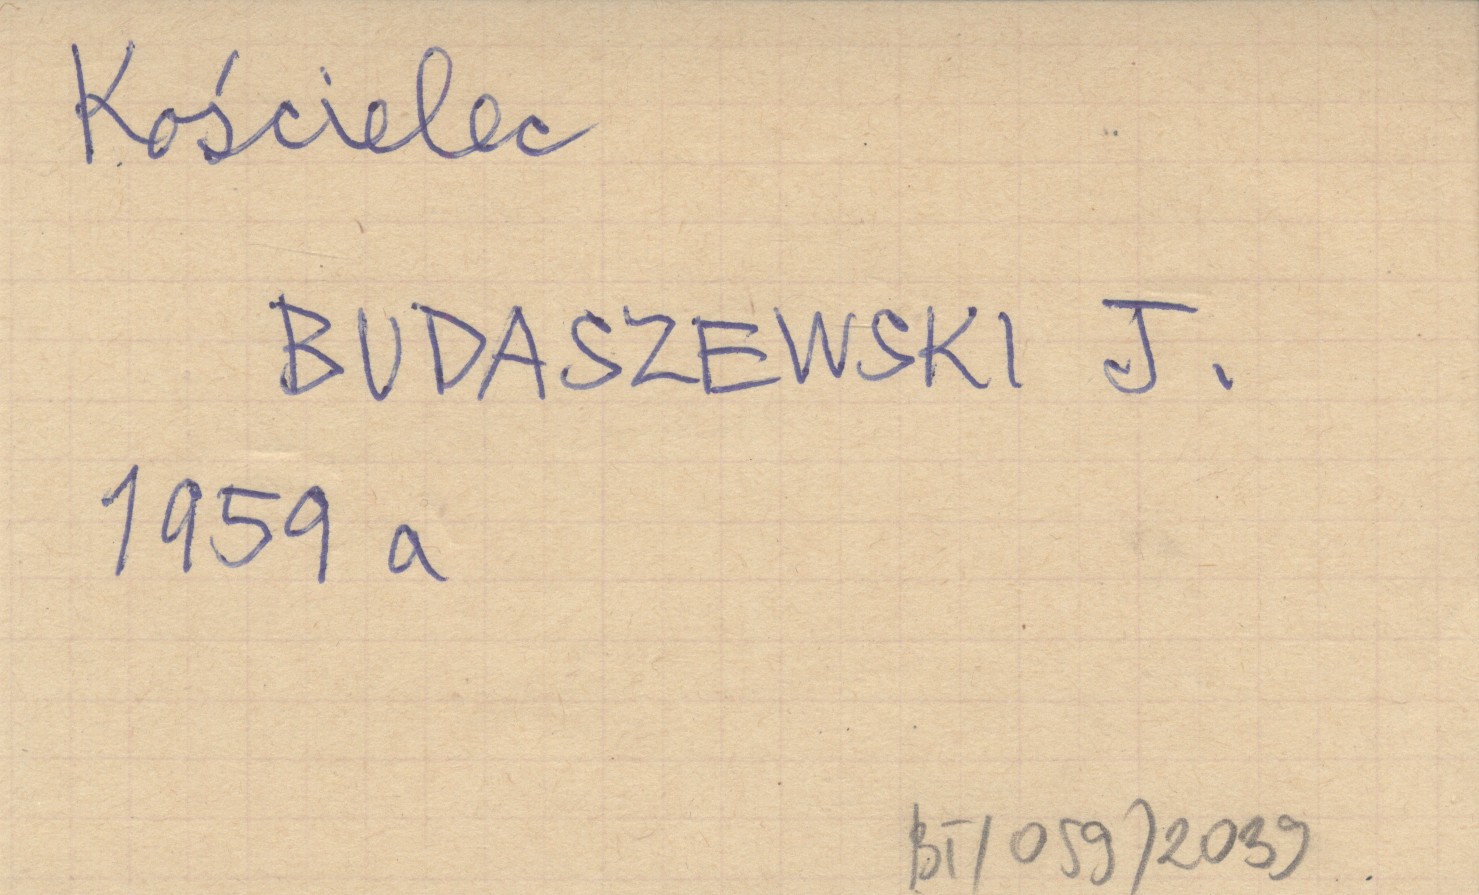 Kościelec
BUDASZEWSKI J.
1959 a
BT/059/2039